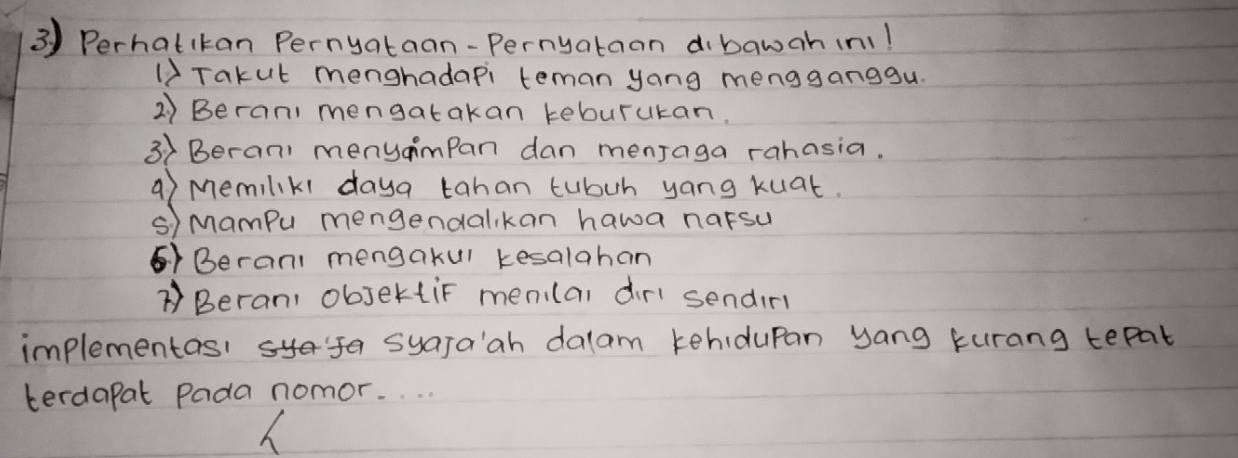 3.) Perhatikan Pernyataan-Pernyataan dibawah ini!
1) Takut menghadapi teman yang mengganggu.
2) Berani mengatakan keburukan.
3) Berani menyimpan dan menjaga rahasia.
4) Memiliki daya tahan tubuh yang kuat.
5) Mampu mengendalikan hawa nafsu
6) Berani mengakui kesalahan
7) Berani objektif menilai diri sendiri
implementasi syaja'ah dalam kehidupan yang kurang tepat
terdapat pada nomor.....